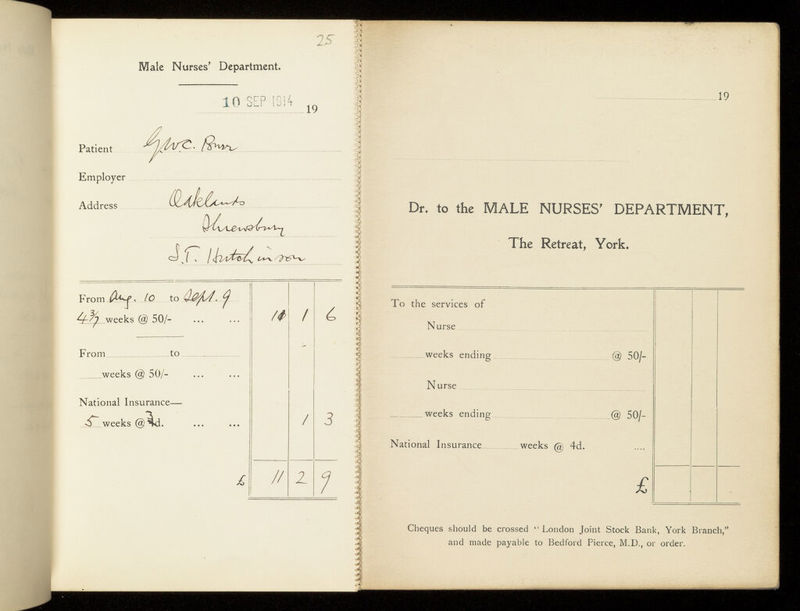 25
Male Nurses' Department.
10 SEP 1914 19
Patient G.W.C.
Employer
Address Oaklands
Shrewsbury
S.T. Hutchinson
From Aug. 10 to Sept. 9
4 3/7 weeks @ 50/- ... ... 11 1 6
From to
weeks @ 50/- ... ...
National Insurance—
5 weeks @ 3d. ... ... 1 3
£ 11 2 9
19
Dr. to the MALE NURSES' DEPARTMENT,
The Retreat, York.
To the services of
Nurse
weeks ending @ 50/-
Nurse
weeks ending @ 50/-
National Insurance weeks @ 4d. ....
£
Cheques should be crossed "London Joint Stock Bank, York Branch,"
and made payable to Bedford Pierce, M.D., or order.